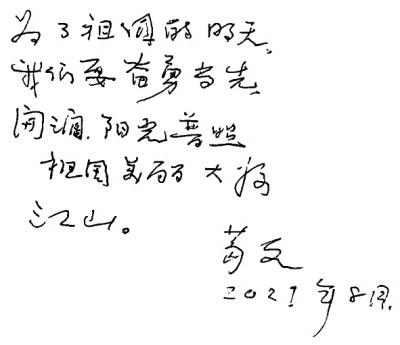 为了祖国的明天,
我们要奋勇当先,
阳光普照
祖国美丽大好
江山。
2021年8月.